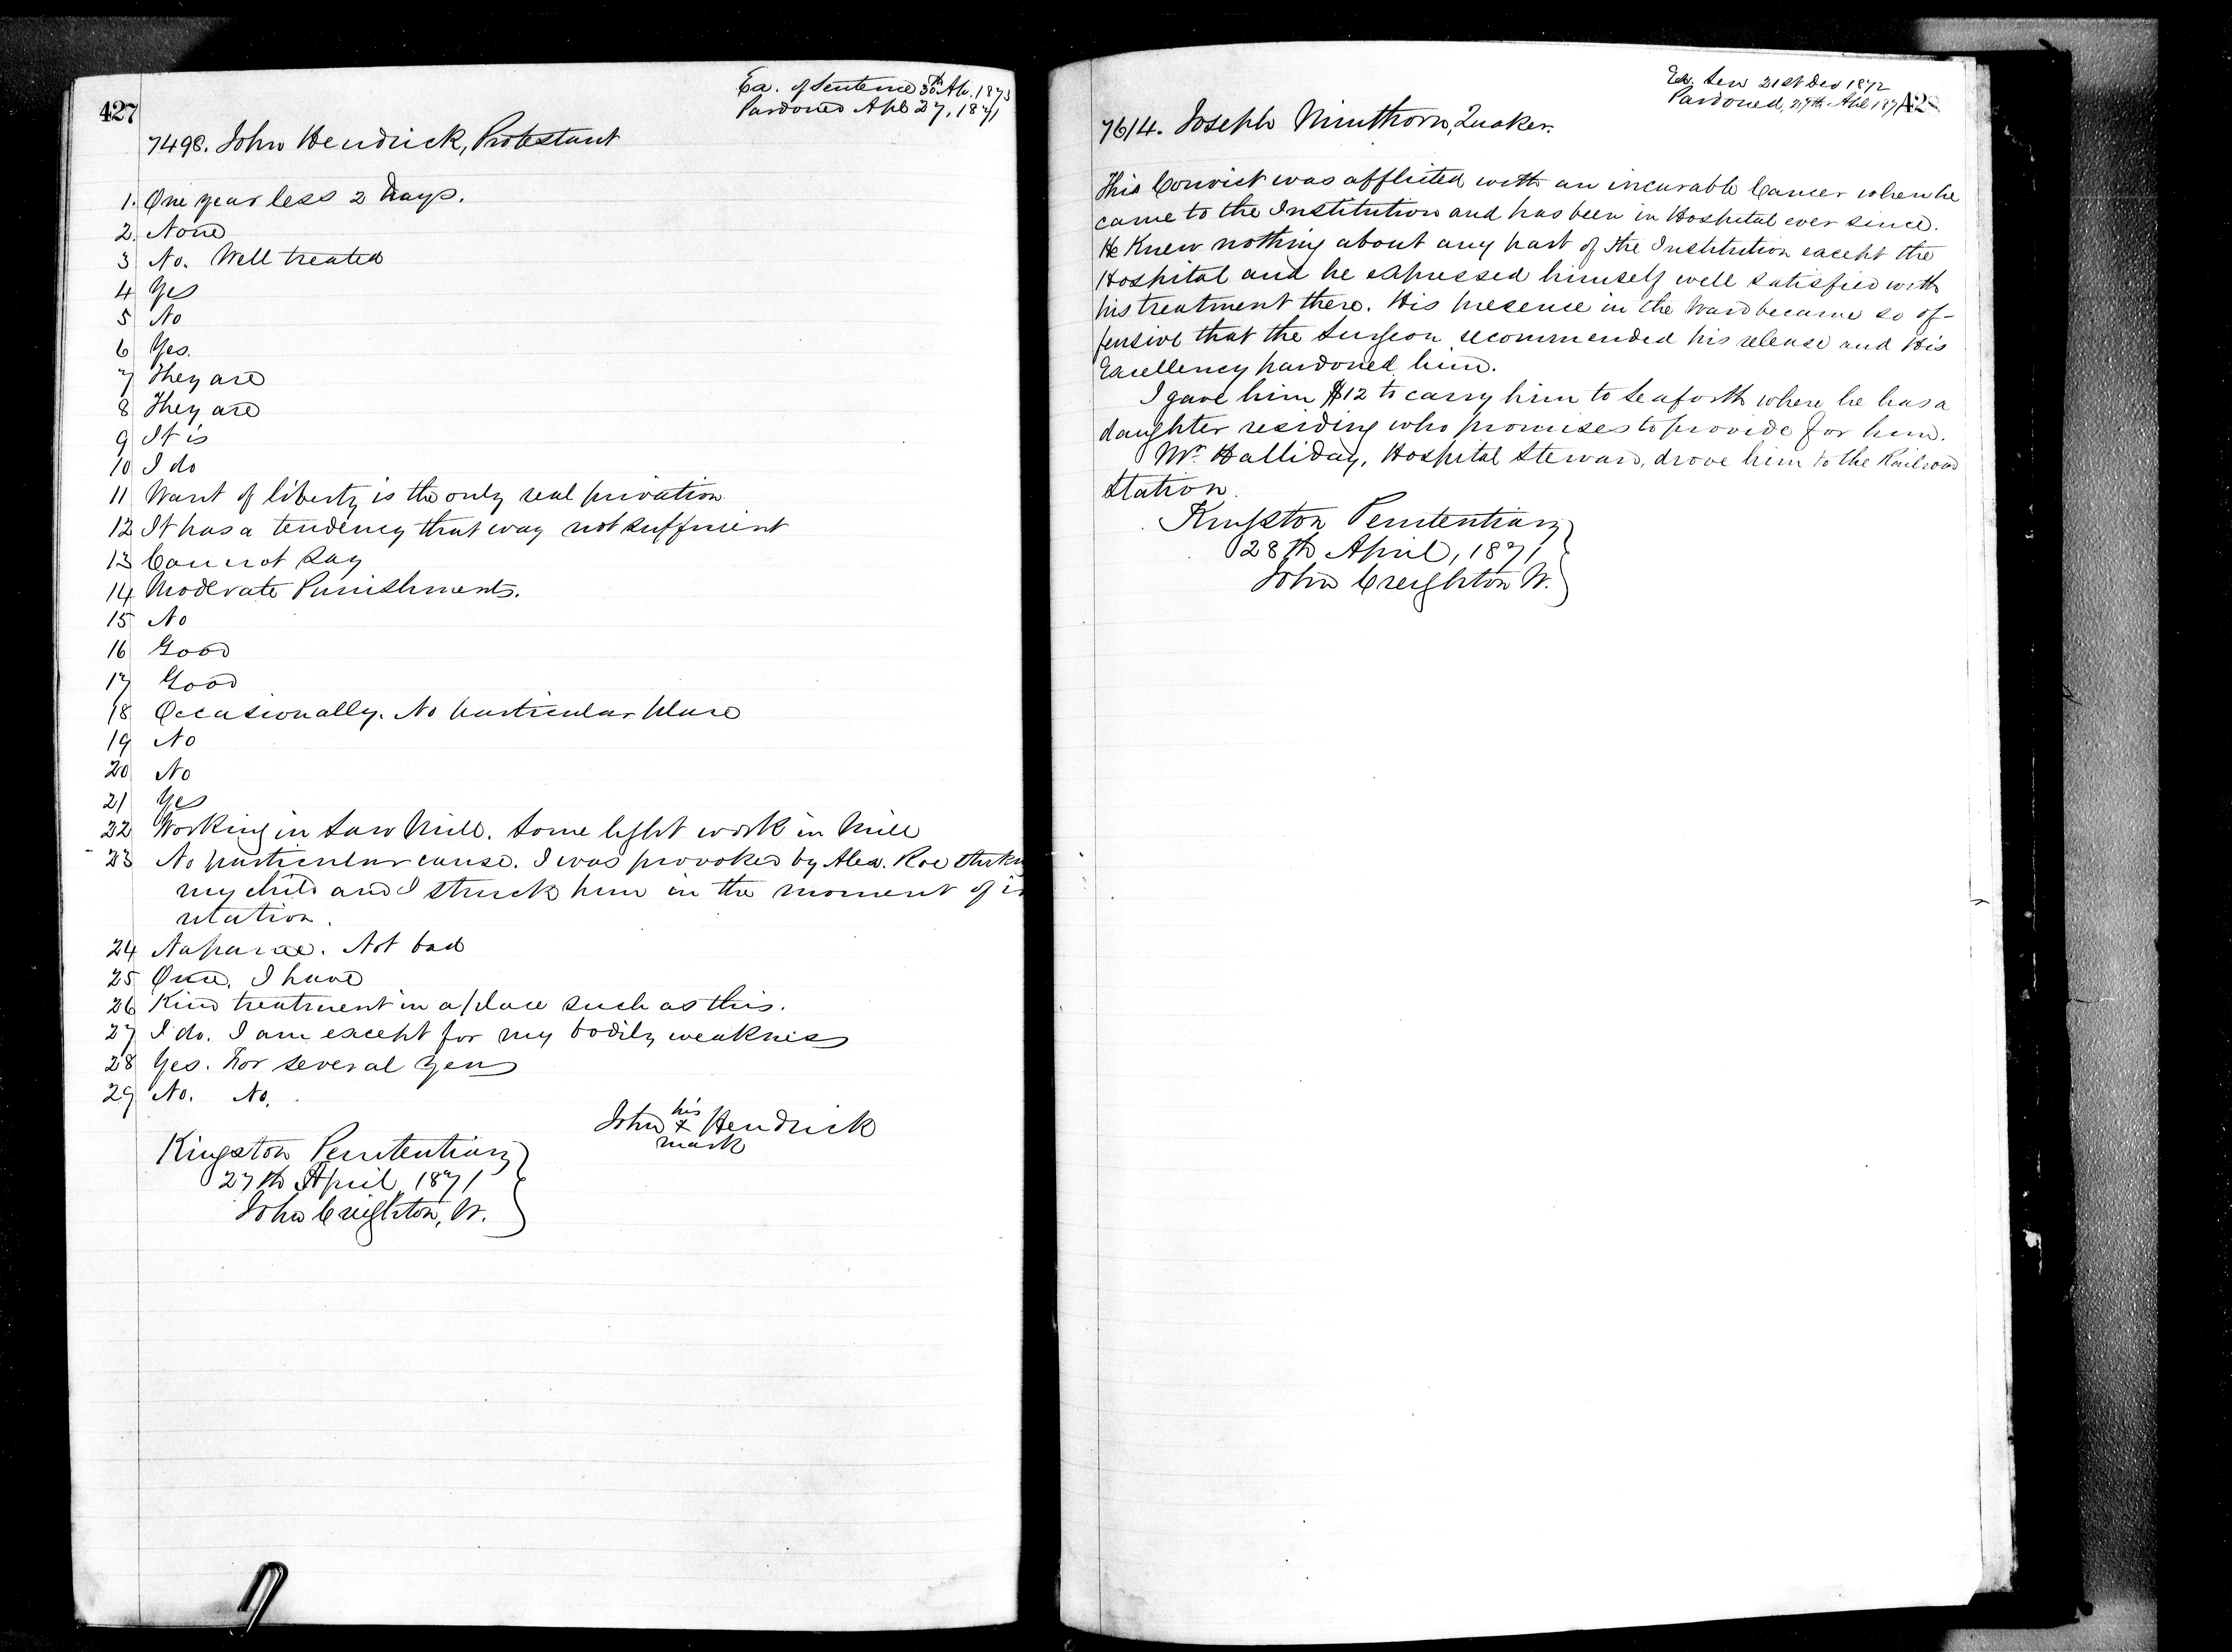 427
Ex. of Sentence 30th Ap. 1873
Pardoned Apl 27, 1871
7498. John Hendrick, Protestant
1. One year less 2 Days.
2. None
3 No. Well treated
4 Yes
5 No
6 Yes.
7 They are
8 They are
9 It is
10 I do
11 Want of liberty is the only real privation
12 It has a tendency that way not sufficient
13 Cannot Say
14 Moderate Punishments.
15 No
16 Good
17 Good
18 Occasionally. No particular place
19 No
20 No
21 Yes
22 Working in Saw Mill. Some light work in Mill
23 No particular cause. I was provoked by Alex. Roe
my child and I struck him in the moment of
ritation.
24 Napanee. Not bad
25 Once. I have
26 Kind treatment in a place such as this.
27 I do. I am except for my bodily weakness
28 Yes. For several years
29 No. No.
his
John x Hendrick
mark
Kingston Penitentiary
27th April, 1871
John Creighton, W.
Ex. Sen 21st Dec 1872
Pardoned, 27th Apl 1871
428
7614. Joseph Minthorn, Quaker.
This Convict was afflicted with an incurable Cancer when he
came to the Institution and has been in Hospital ever since.
He Knew nothing about any part of the Institution except the
Hospital and he expressed himself well satisfied with
his treatment there. His presence in the Ward became so of-
fensive that the Surgeon recommended his release and His
Excellency pardoned him.
I gave him $12 to carry him to Seaforth where he has a
daughter residing who promises to provide for him.
Mr. Halliday, Hospital Steward, drove him to the Railroad
Station.
Kingston Penitentiary
28th April, 1871
John Creighton W.